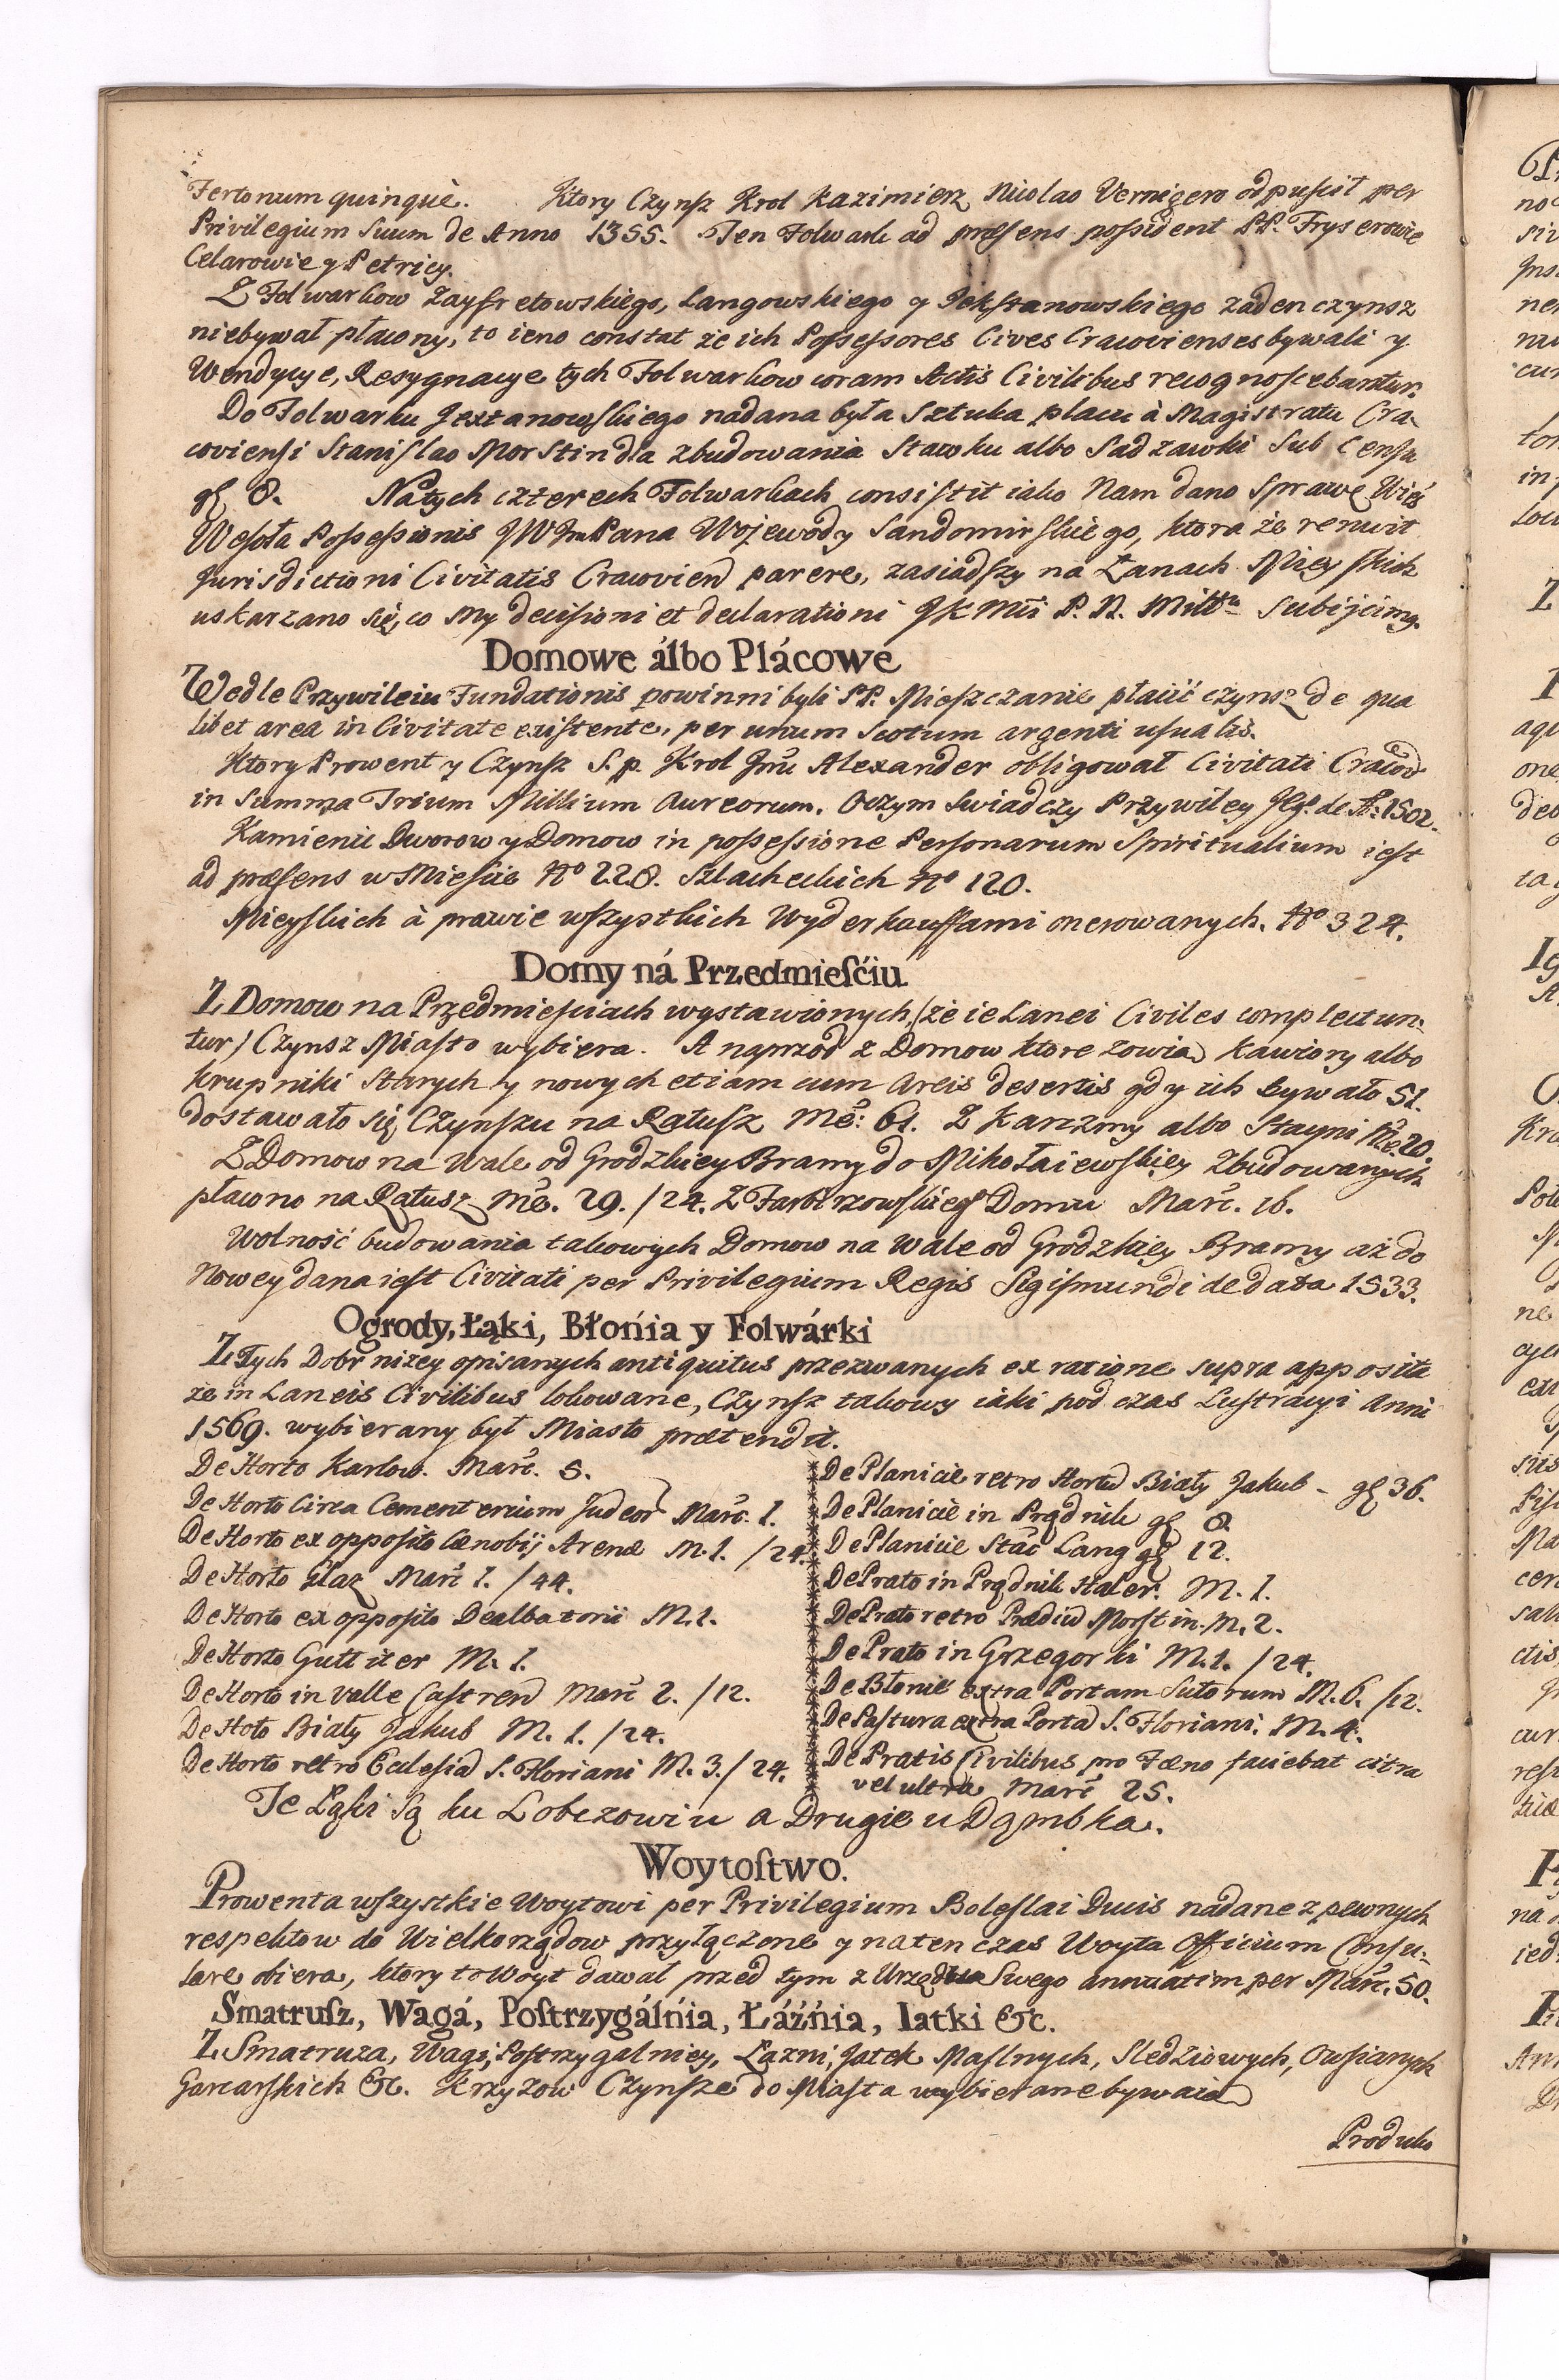 Fertonum quinque. Ktory Czynsz Krol Kazimierz Nicolao Vernigero odpuścił per
Privilegium Suum de Anno 1355. Ten Folwark ad præsens possident PP. Fryserowie
Celarowie y Petricy.
Z Folwarkow Zayfretowskiego, Langowskiego y Jaksztanowskiego zaden czynsz
niebywał płacony, to ieno constat że ich Possessores Cives Cracovienses bywali y
Wendycye, Resygnacye tych Folwarkow coram Actis Civilibus recognoscebantur.
Do Folwarku Jextanowskiego nadana była Sztuka placu à Magistratu Cra-
coviensi Stanislao Morstin dla zbudowania Stawku albo Sadzawki Sub Censu
gꝭ 8. Na tych czterech Folwarkach consistit iako Nam dano Sprawę Wieś
Wesoła Possessionis JWImPana Wojewody Sandomirskiego, ktora że renuit
Jurisdictioni Civitatis Cracovien parere, zasiadszy na Łanach Mieyskich
uskarzano się, co my decisioni et declarationi JKMci P. N. Miltu Subijcimg.
Domowe álbo Plácowe
Wedle Przywileiu Fundationis powinni byli PP. Mieszczanie płacić czynsz de qua
libet area in Civitate existente, per unum Scotum argenti usualis.
Ktory Prowent y Czynsz S. p. Krol Jmć Alexander obligował Civitati Cracov
in Summa Trium Millium Aureorum. Oczym Swiadczy Przywiley Jego de A: 1502.
Kamienic Dworow y Domow in possessione Personarum Spiritualium iest
ad præsens w Miescie No 228. Szlacheckich No 120.
Mieyskich à prawie wszystkich Wyderkauffami onerowanych. No 324.
Domy ná Przedmieśćiu
Z Domow na Przedmiesciach wystawionych, (że ie Lanei Civiles complectun-
tur) Czynsz Miasto wybiera. A naprzod z Domow ktore zowią Kawiory albo
Krupniki Starych y nowych etiam cum Areis desertis gdy ich bywało 51.
dostawało się Czynszu na Ratusz Mc: 61. Z Karczmy albo Stayni Mc. 20.
Z Domow na Wale od Grodzkiey Bramy do Mikołaiewskiey Zbudowanych
płacono na Ratusz Mc. 29. / 24. Z Farbirzowskiego Domu Marc. 16.
Wolność budowania takowych Domow na Wale od Grodzkiey Bramy aż do
Nowey dana iest Civitati per Privilegium Regis Sigismundi de data 1533.
Ogrody, Łąki, Błońia y Folwárki
Z Tych Dobr niżey opisanych antiquitus przezwanych ex ratione supra apposita
że in Laneis Civilibus lokowane, Czynsz takowy iaki pod czas Lustracyi Anni
1569. wybierany był Miasto prætendit.
De Horto Karłow. Marc. 5.
De Horto Circa Cementerium Judeor Marc. 1.
De Horto ex opposito Cœnobij Arenæ M. 1. / 24.
De Horto Glaz Marc 1. / 44.
De Horto ex opposito Dealbatorii M. 1.
De Horto Guttiter M. 1.
De Horto in Valle Castren Marc 2. / 12.
De Hoto Biały Jakub M. 1. / 24.
De Horto retro Ecclesia S. Floriani M. 3. / 24.
De Planicie retro Hortu Biały Jakub - gꝭ 36.
De Planicie in Prądnik gꝭ 8
De Planicie Stac Lang gꝭ 12.
De Prato in Prądnik Haler. M. 1.
De Prato retro Prædiu Morstin. M. 2.
De Prato in Grzegorki M. 1. / 24.
De Błonie extra Portam Sutorum M. 6. / 12.
De Pastura extra Porta S. Floriani. M. 4.
De Pratis Civilibus pro Fæno faciebat citra
vel ultra Marc 25.
Te Łąki Są ku Lobzowiu a Drugie u Dąmbka.
Woytostwo.
Prowenta wszystkie Woytowi per Privilegium Boleslai Ducis nadane z pewnych
respektow do Wielkorządow przyłączone y natenczas Woyta Officium Consu-
lare obiera, ktory to Woyt dawał przed tym z Urzędu Swego annuatim per Marc. 50.
Smatrusz, Wagá, Postrzygálńia, Łáźńia, Iatki &c.
Z Smatruza, Wagi, Postrzygalniey, Łazni, Jatek Maslnych, Sledziowych, Owsianych
Garcarskich &c. Krzyżow Czynsze do Miasta wybierane bywaią
Produko